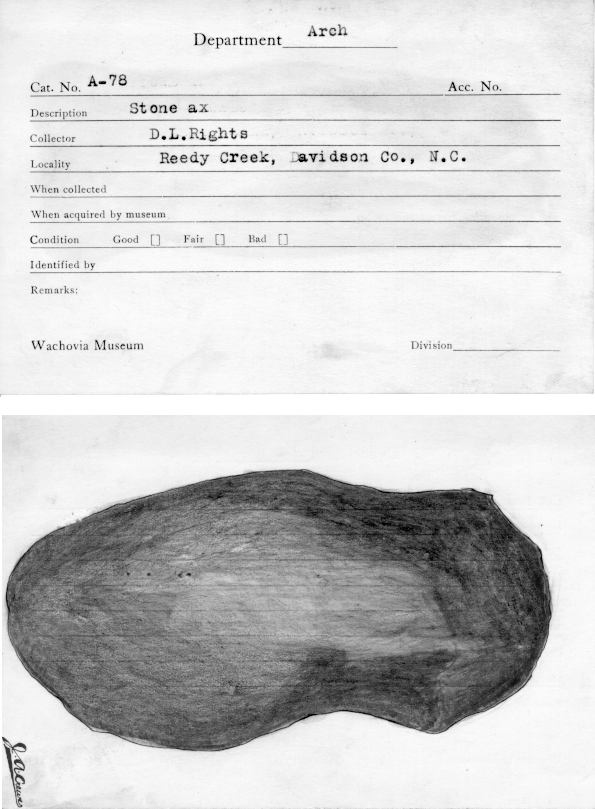 Department Arch
Cat. No. A-78 Acc. No.
Description Stone ax
Collector D.L.Rights
Locality Reedy Creek, Davidson Co., N.C.
When collected
When acquired by museum
Condition Good [] Fair [] Bad []
Identified by
Remarks:
Wachovia Museum Division